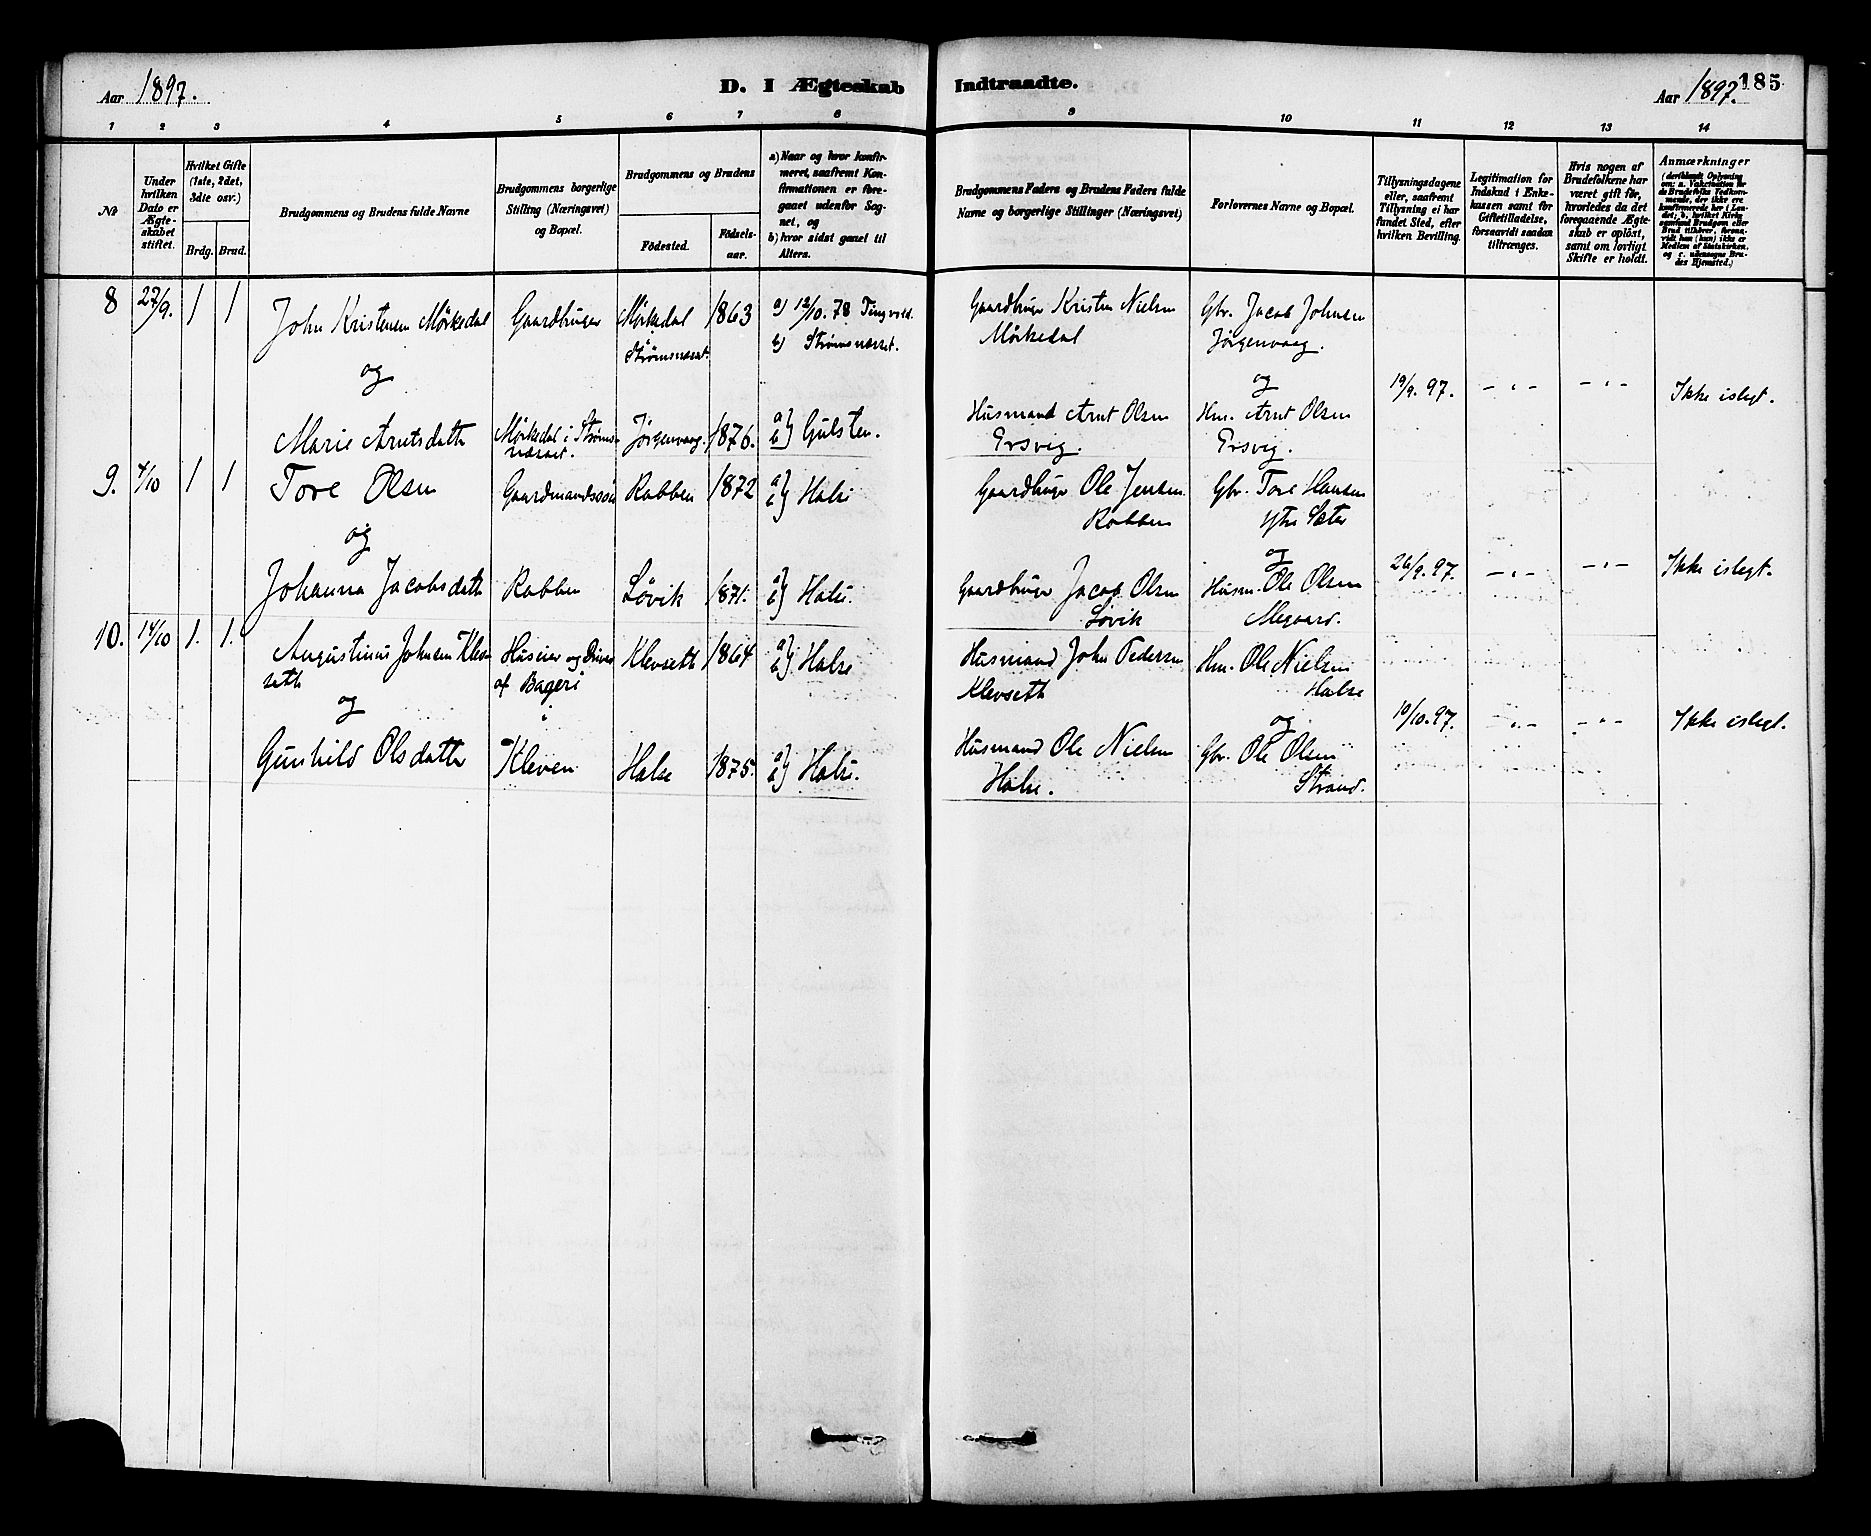 Aar 1897.
D. I Ægteskab Indtraadte.
Aar 1897.
185
1 2 3 4 5 6 7 8 9 10 11 12 13 14
№
Under hvilken Dato er Ægteskabet stiftet.
Hvilket Gifte (1ste, 2det, 3die osv.)
Brdg. Brud.
Brudgommens og Brudens fulde Navne
Brudgommens borgerlige Stilling (Næringsvei) og Bopæl.
Brudgommens og Brudens
Födested.
Födselsaar.
a) Naar og hvor konfirmeret, saafremt Konfirmationen er foregaaet udenfor Sognet, og
b) hvor sidst gaaet til Alters.
Brudgommens Faders og Brudens Faders fulde Navne og borgerlige Stillinger (Næringsvei)
Forlovernes Navne og Bopæl.
Tillysningsdagene eller, saafremt Tillysning ei har fundet Sted, efter hvilken Bevilling.
Legitimation for Indskud i Enkekassen samt for Giftetilladelse, forsaavidt saadan tiltrænges.
Hvis nogen af Brudefolkene har været gift för, hvorledes da det foregaaende Ægteskab er oplöst, samt om lovligt Skifte er holdt.
Anmærkninger
(deriblandt Oplysning om: a. Vakcination for de Brudefolks Vedkommende, der ikke ere konfirmerede her i Landet; b. hvilket Kirkesamfund Brudgom eller Brud tilhører, forsaavidt han (hun) ikke er Medlem af Statskirken, og c. udensogns Brudes Hjemsted.)
8 27/9. 1 1 John Kristensen Mörkedal Gaardbruger Mörkedal 1863 a) 12/10. 78. Tingvold. Gaardbruger Kristen Nielsen Gbr. Jacob Johnsen
Strömsnæset. b) Strömsnæsset. Mörkedal Jörgenvaag.
og og 19/9. 97. - " - - " - Ikke islegt.
Marie Arntsdatter Mörkedal i Strömsnæset. Jörgenvaag. 1876. a b} Gulsten. Husmand Arnt Olsen Hm. Arnt Olsen
Ersvig. Ersvig.
9. 4/10 1 1 Tore Olsen Gaardmandssøn Rabben 1872 a b} Halse Gaardbruger Ole Jensen Gbr. Tore Hansen
Rabben ytre Sæter
og og 26/9. 97. - " - - " - Ikke islegt.
Johanna Jacobsdatter Rabben Løvik 1871. a b} Halse. Gaardbruger Jacob Olsen Husm. Ole Olsen
Løvik Megaard.
10. 14/10 1. 1. Augustinus Johnsen Klevseth Huseier og Driver Klevseth 1864 a b} Halse Husmand John Pedersen Hm. Ole Nielsen
af Bageri Klevseth Halse
og " og 10/10. 97. - " - - " - Ikke islegt.
Gunhild Olsdatter Kleven Halse 1875. a b} Halse. Husmand Ole Nielsen Gbr. Ole Olsen
Halse. Strand.